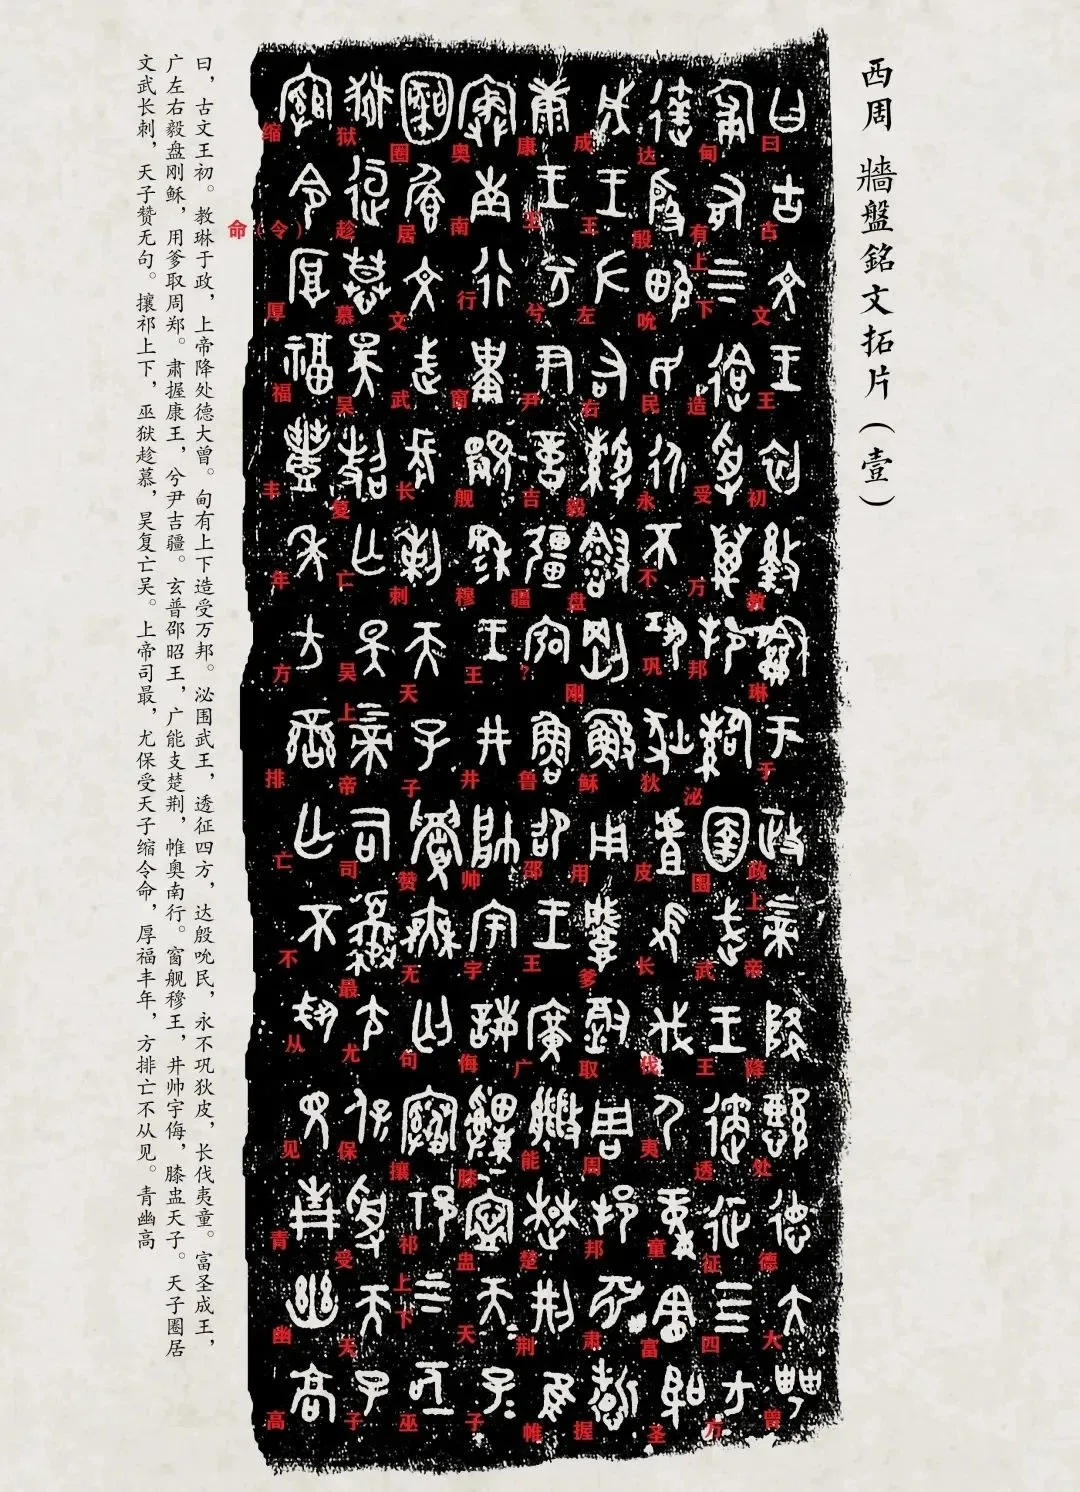 西周 牆盤銘文拓片(壹)
曰古文王初教琳于政上帝降处德大曾
甸有上下造受万邦泌围武王透征四方
达殷吮民永不巩狄皮长伐夷童富圣
成王左右毅盘刚稣用爹取周邦肃握
康王兮尹吉疆?鲁邵王广能楚荆帷
奥南行窗舰穆王井帅宇侮膝盅天子
圈居文武长刺天子赞无句攘祁上下巫
狱趁慕吴复亡吴上帝司最尤保受天子
缩命(令)厚福丰年方排亡不从见青幽高
曰，古文王初。教琳于政，上帝降处德大曾。甸有上下造受万邦。泌围武王，透征四方，达殷吮民，永不巩狄皮，长伐夷童。富圣成王，
广左右毅盘刚稣，用爹取周郑。肃握康王，兮尹吉疆。玄普邵昭王，广能支楚荆，帷奥南行。窗舰穆王，井帅宇侮，膝盅天子。天子圈居
文武长刺，天子赞无句。攘祁上下，巫狱趁慕，昊复亡吴。上帝司最，尤保受天子缩令命，厚福丰年，方排亡不从见。青幽高